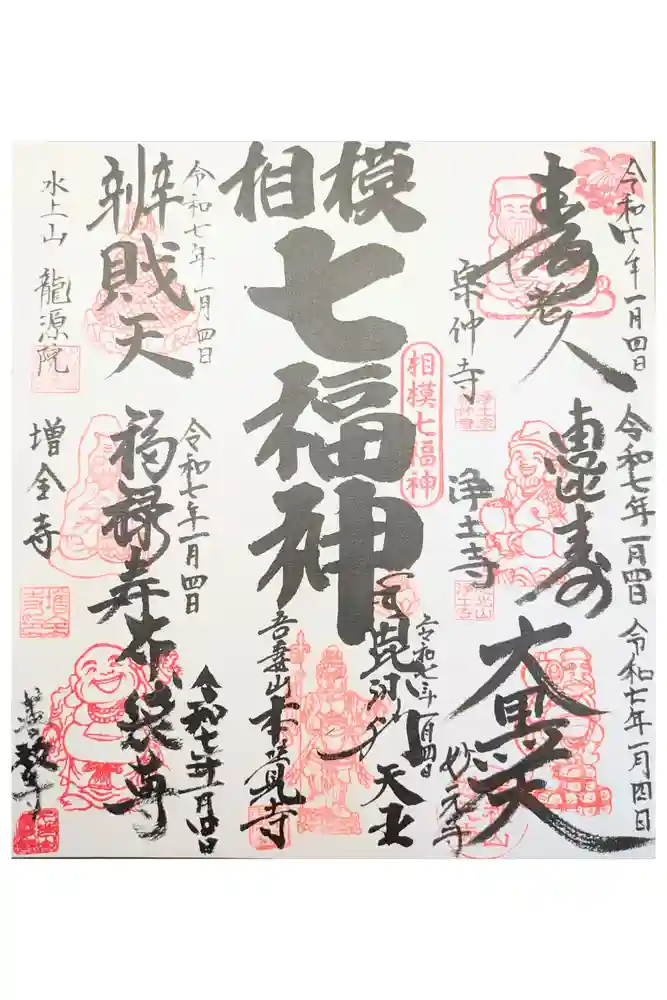 相模
七福神
相模七福神
令和七年一月四日
寿老人
宗仲寺
浄土宗
令和七年一月四日
恵比寿
浄土寺
令和七年一月四日
大黒天
妙元寺
令和七年一月四日
毘沙門天王
吾妻山 本覚寺
令和七年一月四日
辨財天
水上山 龍源院
令和七年一月四日
福禄寿
増全寺
令和七年一月四日
布袋尊